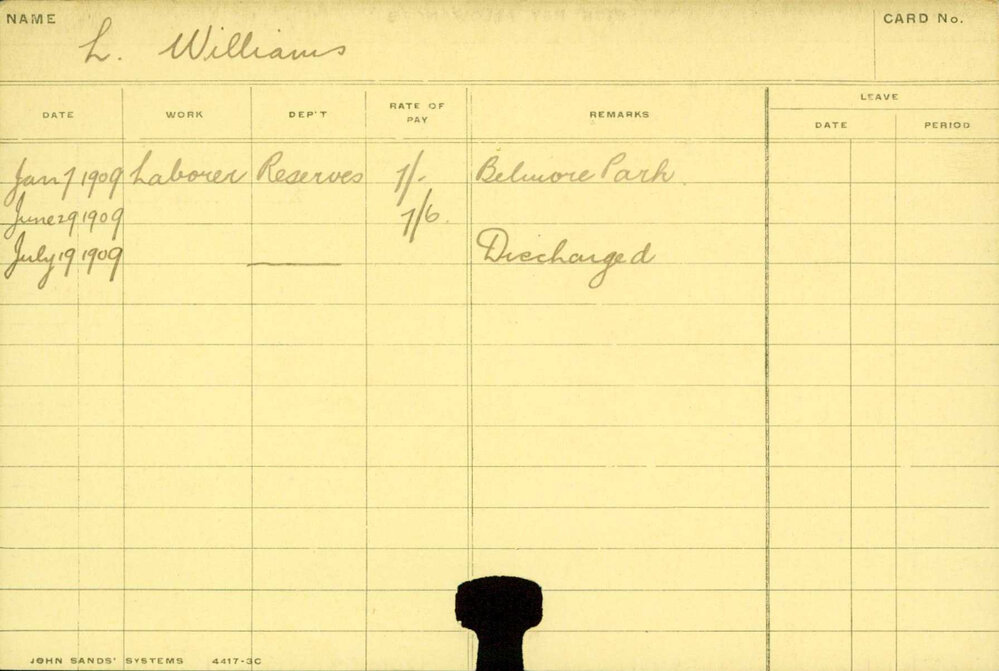 NAME L. Williams CARD No.
DATE WORK DEP'T RATE OF PAY REMARKS LEAVE DATE PERIOD
Jan 7 1909 Laborer Reserves 7/- Belmore Park
June 29 1909 7/6.
July 19 1909 Discharged
JOHN SANDS' SYSTEMS 4417-3C